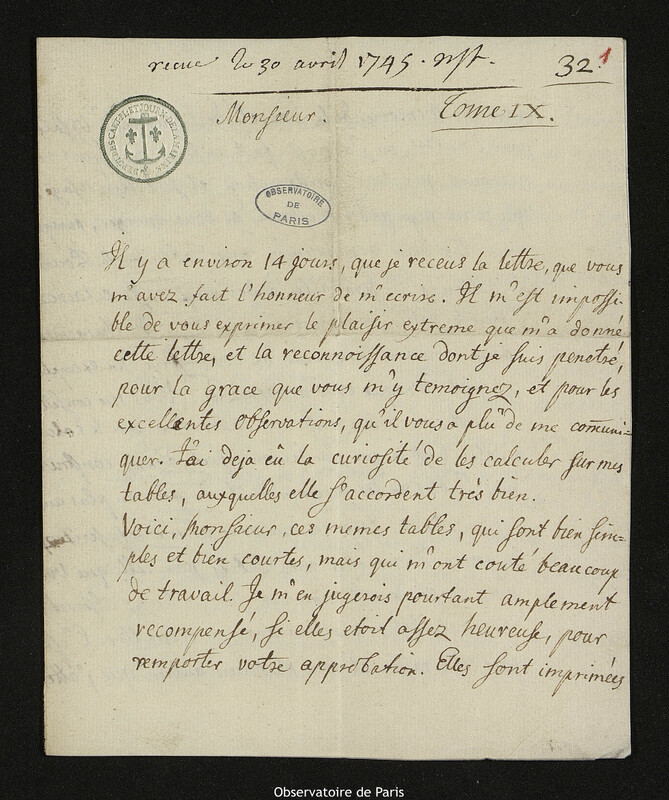 recue le 30 avril 1745. nst.
32.
1
Monsieur.
Tome IX.
OBSERVATOIRE
DE
PARIS
Il y a environ 14 jours, que je receus la lettre, que vous
m'avez fait l'honneur de m'ecrire. Il m'est impossi-
ble de vous exprimer le plaisir extreme que m'a donné
cette lettre, et la reconnoissance dont je suis penetré,
pour la grace que vous m'y temoignez, et pour les
excellentes Observations, qu'il vous a plû de me com̃uni=
quer. J'ai deja eû la curiosité de les calculer sur mes
tables, auxquelles elle s'accordent trés bien.
Voici, Monsieur, ces memes tables, qui sont bien sim=
ples et bien courtes, mais qui m'ont couté beaucoup
de travail. Je m'en jugerois pourtant amplement
recompensé, si elles etoit assez heureuse, pour
remporter votre approbation. Elles sont imprimées
Observatoire de Paris